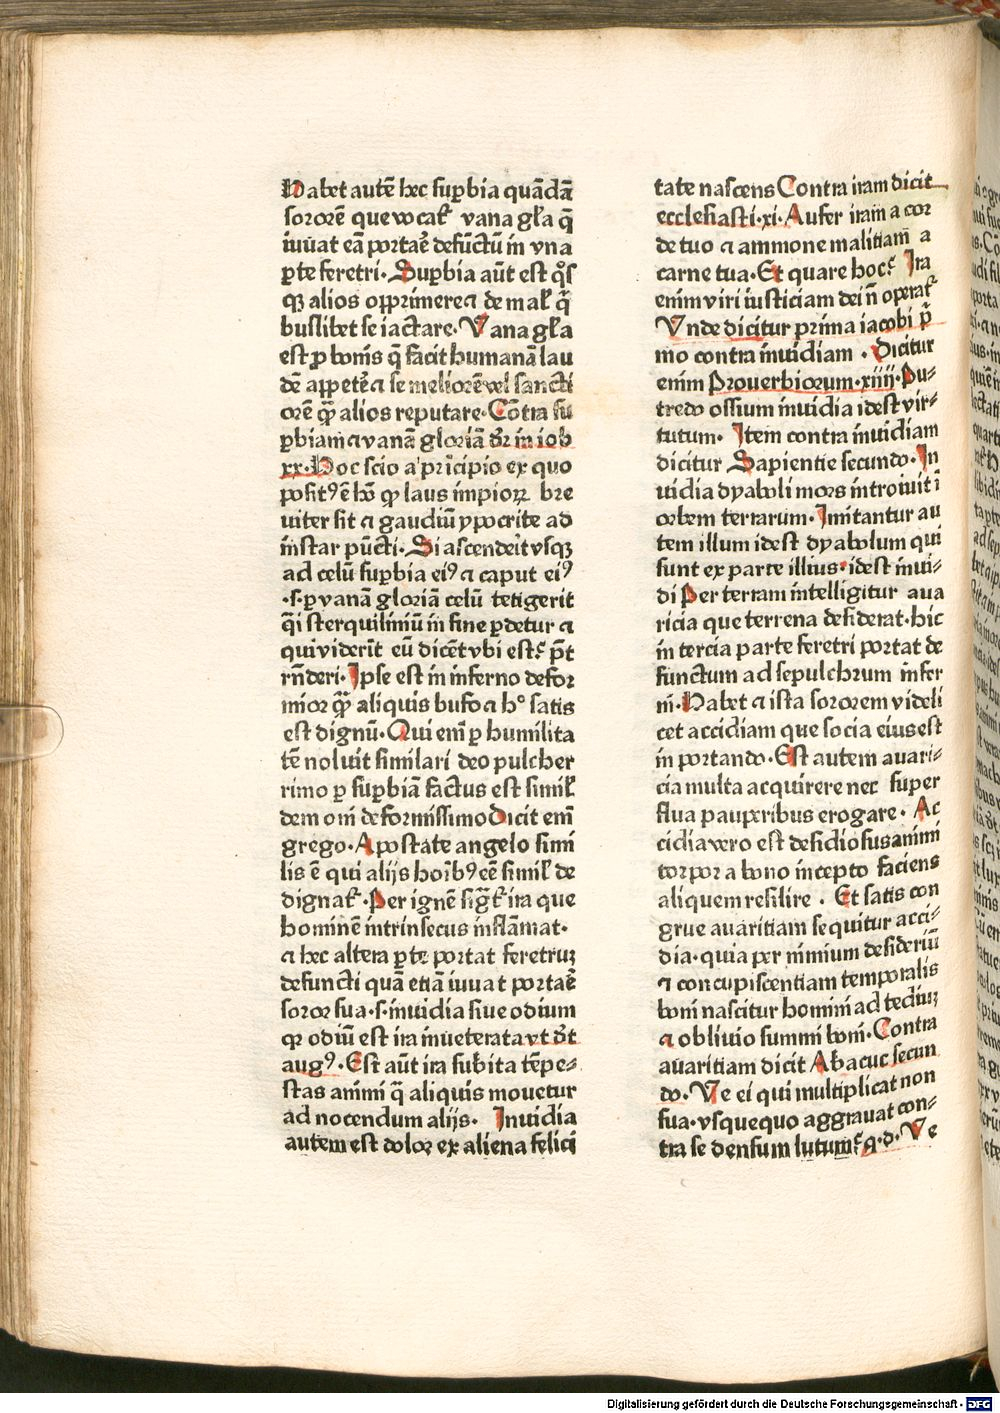 Habet autē hec suꝑbia quādā
sororē que vocat̄ vana gl̄a q̄
iuuat eā portar̄e defūctū in vna
ꝑte feretri. Suꝑbia aūt est q̄s
qꝫ alios opprimere ⁊ de mal̄ q̄
buslibet se iactare. Vana gl̄a
est ꝓ bonis q̄ facit humanā lau
dē appetē ⁊ se meliorē vel sancti
orē qꝫ̄ alios reputare. Cōtra su
ꝑbiam ⁊ vanā gloriā dr̄ in iob
xx. Hoc scio a pricipio ex quo
posit⁹ ē hō ꝙ laus impioꝝ bre
uiter sit ⁊ gaudiū ypocrite ad
instar pūcti. Si ascenderit vsqꝫ
ad celū suꝑbia ei⁹ ⁊ caput ei⁹
.s. ꝑ vanā gloriā celū tetigerit
q̄i sterquiliniū in fine ꝑdetur ⁊
qui viderit eū dicēt vbi est? p̄t
rn̄deri. Ipse est in inferno defor
mior qꝫ̄ aliquis bufo ⁊ h° satis
est dignū. Qui em̄ ꝑ humilita
tē noluit similari deo pulcher
rimo ꝑ suꝑbiā factus est simil̄
demoni deformissimo Dicit em̄
grego. Apostate angelo simi
lis ē qui alijs hoīb⁹ eē simil̄ de
dignat̄. Per ignē sig̃t̄ ira que
hominē intrinsecus inflāmat.
⁊ hec altera ꝑte portat feretruꝫ
defuncti quā etiā iuuat portar̄e
soror sua .s. inuidia siue odium
qꝛ odiū est ira inueterata vt dr̄t
aug⁹. Est aūt ira subita tēpe-
stas animi q̄ aliquis mouetur
ad nocendum alijs. Inuidia
autem est doloꝛ ex aliena felici
tate nascens Contra iram dicit
ecclesiasti. xi. Aufer iram a cor
de tuo ⁊ ammone malitiam a
carne tua. Et quare hoc? Ira
enim viri iusticiam dei n̄ operat̄
Vnde dicitur prima iacobi p̄
mo contra inuidiam . Dicitur
enim Prouerbiorum. xiiij. Pu-
tredo ossium inuidia idest vir-
tutum. Item contra inuidiam
dicitur Sapientie secundo. In
uidia dyaboli mors introiuit ī
orbem terrarum. Imitantur au
tem illum idest dyabolum qui
sunt ex parte illius. idest inui-
di Per terram intelligitur aua
ricia que terrena desiderat. hic
in tercia parte feretri portat de
functum ad sepulchrum infer
ni. Habet ⁊ ista sororem videli
cet accidiam que socia eius est
in portando. Est autem auari-
cia multa acquirere nec super
flua pauperibus erogare. Ac
cidia vero est desidiosus animi
torpor a bono incepto faciens
aliquem resilire . Et satis con
grue auaritiam sequitur acci-
dia. quia per nimium desideriū
⁊ concupiscentiam temporalis
boni nascitur homini ad tediuꝫ
⁊ obliuio summi boni. Contra
auaritiam dicit Abacuc secun
do. Ve ei qui multiplicat non
sua. vsquequo aggrauat con-
tra se densum lutum? q. d. Ve
Digitalisierung gefördert durch die Deutsche Forschungsgemeinschaft - DFG